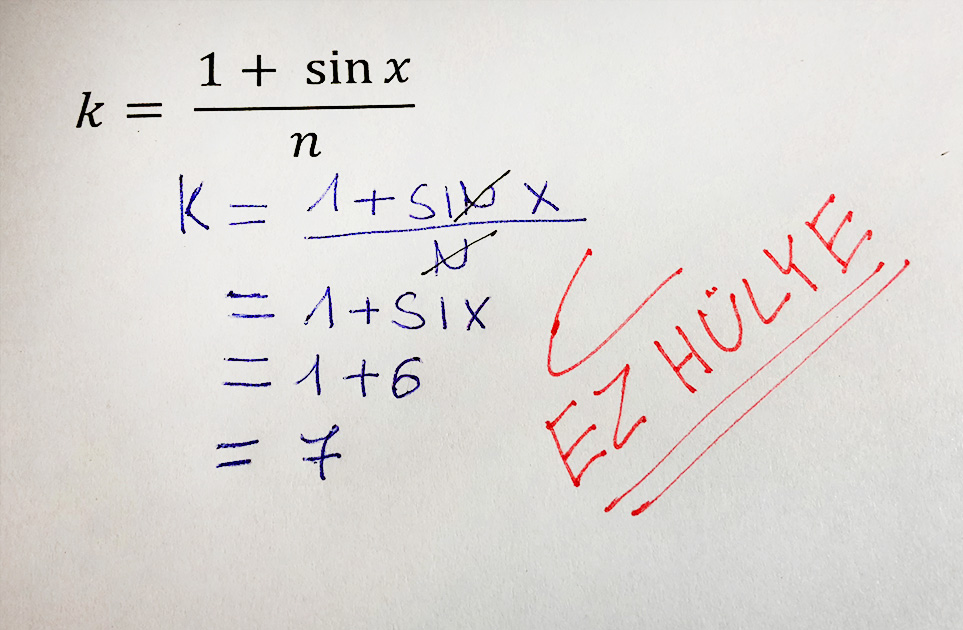 k = 1 + sin x / n
K = 1 + SIN X / N
= 1 + SIX
= 1 + 6
= 7
EZ HÜLYE